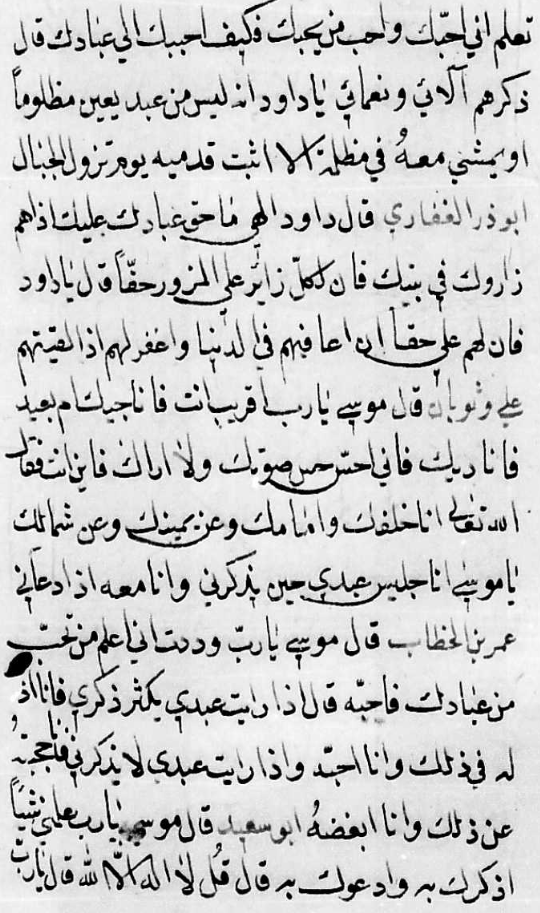 تعلم اني احبك واحب من يحبك فكيف احببك الي عبادك قال
ذكرهم آلائي ونعمائي يا داود انه ليس من عبد يعين مظلوماً
او يمشي معهُ في مظلمة الا اثبت قدميه يوم تزول الجبال
ابوذر الغفاري قال داود الهي ما حق عبادك عليك اذا هم
زاروك في بيتك فان لكلّ زائر على المزور حقّاً قال يا داود
فان لهم علي حقاً ان اعافيهم في الدنيا واغفر لهم اذا لقيتهم
علي وثوبان قال موسي يا رب اقريب انت فاناجيك ام بعيد
فاناديك فاني احسّ حس صوتك ولا اراك فاين انت فقال
الله تعالى انا خلفك وامامك وعن يمينك وعن شمالك
يا موسي انا جليس عبدي حين يذكرني وانا معه اذا دعاني
عمر بن الخطاب قال موسي يا ربّ وددت اني اعلم من تحبّ
من عبادك فاحبّه قال اذا رايت عبدي يكثر ذكري فانا اذنت
له في ذلك وانا احبّه واذا رايت عبدي لا يذكرني فانا حجبتهُ
عن ذلك وانا ابغضهُ ابو سعيد قال موسي يا رب علمني شيئاً
اذكرك به وادعوك به قال قُل لا اله الاّ الله قال يا ربّ